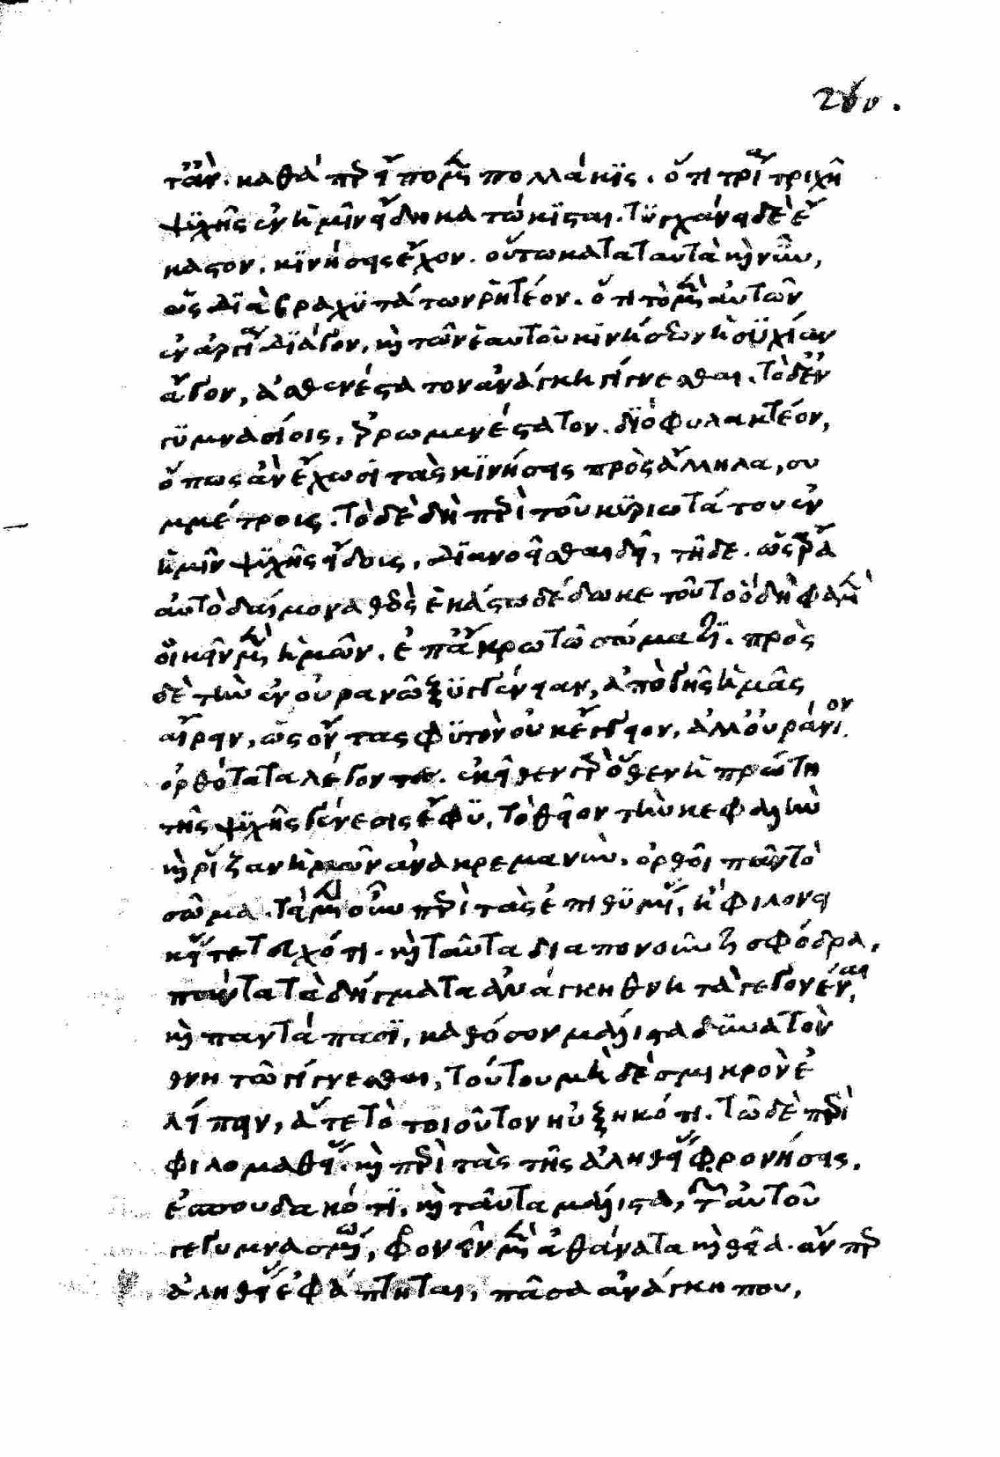 τἂν. καθάπερ εἴπομεν πολλάκις. ὅτι τρία τριχῆ
ψυχῆς ἐν ἡμῖν εἴδη κατώκισται. τυγχάνει δὲ ἕ
καστον, κινήσεις ἔχον. οὕτω κατὰ ταυτὰ καὶ νῦν,
ὡς διὰ βραχυτάτων ῥητέον. ὅτι τὸ μὲν αὐτῶν
ἐν ἀργίᾳ διάγον, καὶ τῶν ἑαυτοῦ κινήσεων ἡσυχίαν
ἄγον, ἀσθενέστατον ἀνάγκη γίγνεσθαι. τὸ δ' ἐν
γυμνασίοις, ἐρρωμενέστατον. διὸ φυλακτέον,
ὅπως ἂν ἔχωσι τὰς κινήσεις πρὸς ἄλληλα, συ
μμέτροις. τὸ δὲ δὴ περὶ τοῦ κυριωτάτου ἐν
ἡμῖν ψυχῆς εἴδους, διανοεῖσθαι δεῖ, τῇδε. ὡς ἄρα
αὐτὸ δαίμονα θεὸς ἑκάστῳ δέδωκε τοῦτο ὃ δή φαμεν
οἰκεῖν μὲν ἡμῶν. ἐπ' ἄκρῳ τῷ σώματι. πρὸς
δὲ τὴν ἐν οὐρανῷ ξυγγένειαν, ἀπὸ γῆς ἡμᾶς
αἴρειν, ὡς ὄντας φυτὸν οὐκ ἔγγειον, ἀλλ' οὐράνιον.
ὀρθότατα λέγοντες. ἐκεῖθεν γὰρ ὅθεν ἡ πρώτη
τῆς ψυχῆς γένεσις ἔφυ, τὸ θεῖον τὴν κεφαλὴν
καὶ ῥίζαν ἡμῶν ἀνακρεμαννὺν, ὀρθοῖ πᾶν τὸ
σῶμα. τῷ μὲν οὖν περὶ τὰς ἐπιθυμίας, ἢ φιλονει
κίας τετευχότι. καὶ ταῦτα διαπονοῦντι σφόδρα,
πάντα τὰ δόγματα ἀνάγκη θνητὰ γεγονέναι,
καὶ παντάπασι, καθόσον μάλιστα δυνατὸν
θνητῷ γίγνεσθαι, τούτου μηδὲ σμικρὸν ἐ
λείπειν, ἅτε τὸ τοιοῦτον ηὐξηκότι. τῷ δὲ περὶ
φιλομαθίαν. καὶ περὶ τὰς τῆς ἀληθείας φρονήσεις,
ἐσπουδακότι, καὶ ταῦτα μάλιστα, τῶν αὐτοῦ
γεγυμνασμένῳ, φρονεῖν μὲν ἀθάνατα καὶ θεῖα. ἄνπερ
ἀληθείας ἐφάπτηται, πᾶσα ἀνάγκη που,